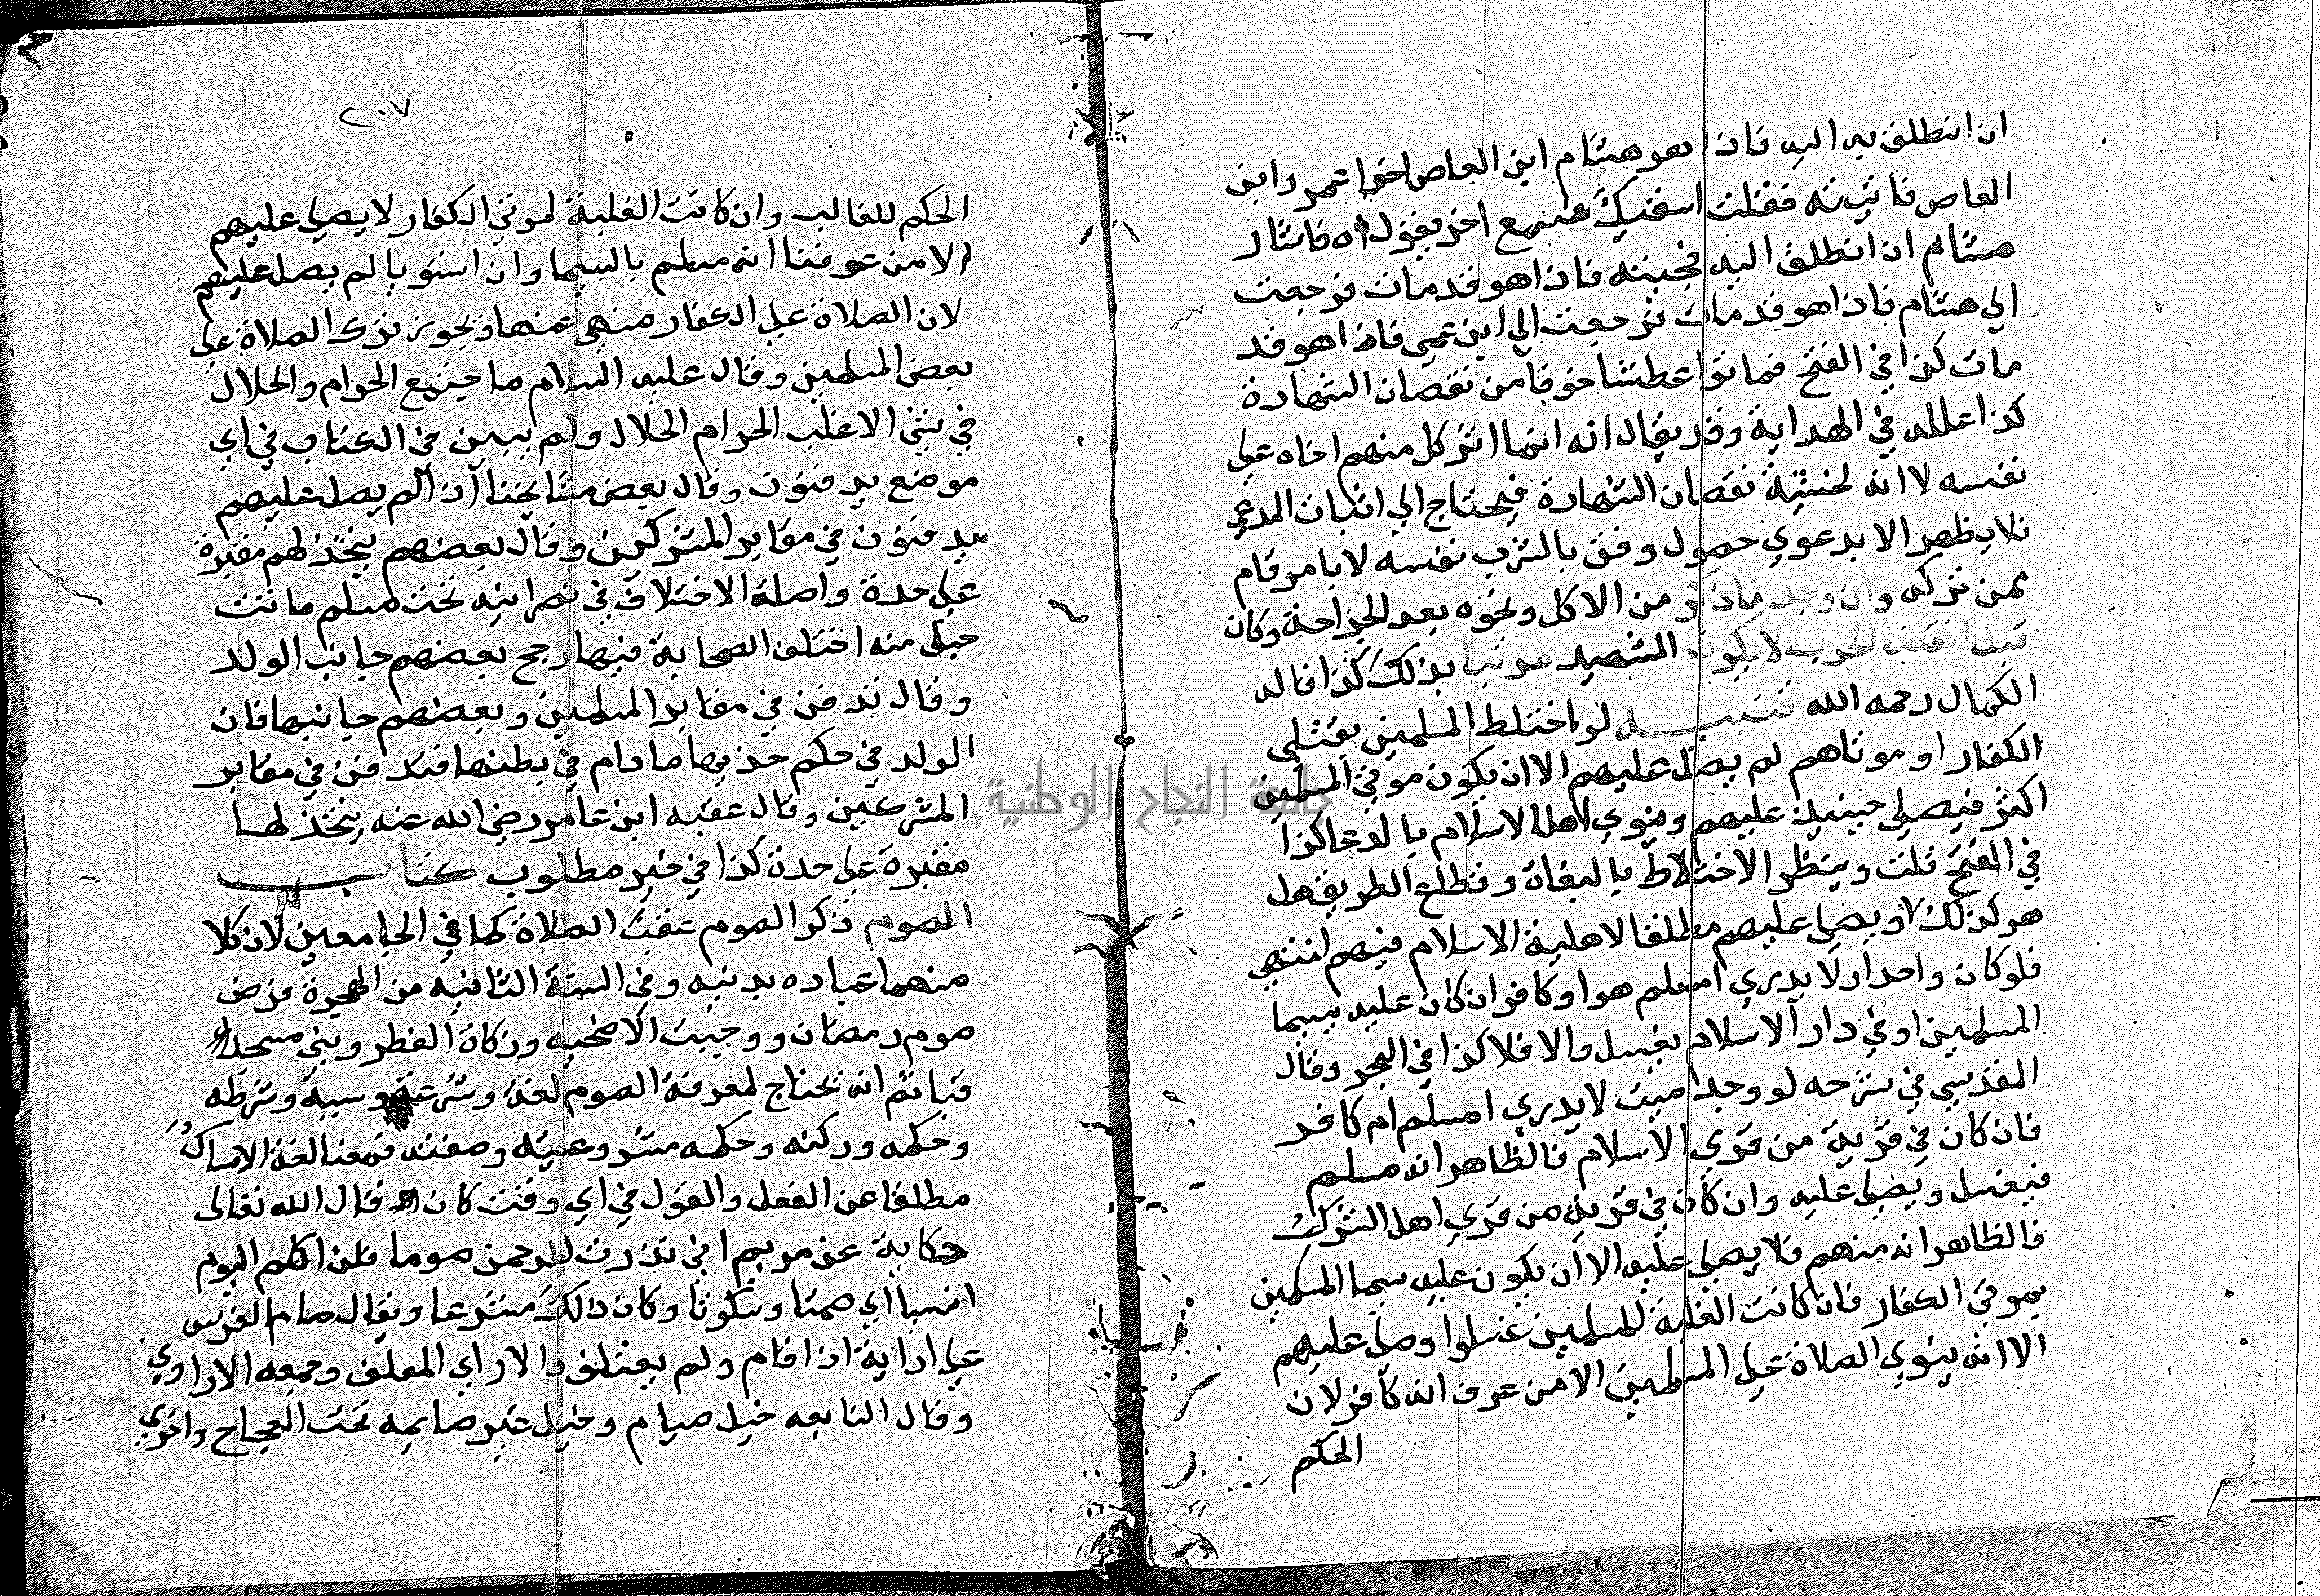 ان انطلق به اليه فاذا هو هشام ابن العاص اخوا عمرو ابن
العاص فاتيته فقلت اسقيك فسمع اخر يقول اه فاشار
هشام ان انطلق اليه فجيته فاذا هو قد مات فرجعت
الي هشام فاذا هو قد مات فرجعت الي ابن عمي فاذا هو قد
مات كذا في الفتح فماتوا عطشا خوفا من نقصان الشهادة
كذا علله في الهداية وقد يقال انه انما اثر كل منهم اخاه علي
نفسه لا انه لخشية نقصان الشهادة فيحتاج الي اثبات المدعي
فلا يظهر الا بدعوي حصول وفق بالشرب نفسه لا بامر قام
بمن تركه وان وجد ماذكر من الاكل ونحوه بعد الجراحة وكان
قبل الحرب لا يكون الشهيد مرتثا بذلك كذا قاله
الكمال رحمه الله تنبيه لو اختلط المسلمين بقتلي
الكفار او موتاهم لم يصل عليهم الا ان يكون موتي المسلمين
اكثر فيصلي حينيذ عليهم وينوي اهل الاسلام بالدعا كذا
في الفتح قلت وينظر الاختلاط بالبغاة وقطاع الطريق هل
هو كذلك او يصلي عليهم مطلقا لاهلية الاسلام فيهم انتهي
فلو كان واحدا ولا يدري امسلم هو او كافر ان كان عليه سيما
المسلمين او في دار الاسلام يغسل والا فلا كذا في البحر وقال
المقدسي في شرحه لو وجد ميت لا يدري امسلم ام كافر
فان كان في قرية من قري الاسلام فالظاهر انه مسلم
فيغسل ويصلي عليه وان كان في قرية من قري اهل الشرك
فالظاهر انه منهم فلا يصلي عليه الا ان يكون عليه سيما المسلمين
بموتي الكفار فان كانت الغلبة للمسلمين غسلوا وصلي عليهم
الا انه ينوي الصلاة علي المسلمين الا من عرف انه كافر لان
الحكم
٢٠٧
الحكم للغالب وان كانت الغلبة لموتي الكفار لا يصلي عليهم
الا من عرفنا انه مسلم بالسيما وان استويا لم يصل عليهم
لان الصلاة علي الكفار منهي عنها ويجوز ترك الصلاة علي
بعض المسلمين وقال عليه السلام ما اجتمع الحرام والحلال
في شي الا غلب الحرام الحلال ولم يبين في الكتاب في اي
موضع يدفنون وقال بعض مشايخنا اذا لم يصل عليهم
يدفنون في مقابر المشركين وقال بعضهم يتخذ لهم مقبرة
علي حدة واصله الاختلاف في نصرانيه تحت مسلم ماتت
حبلي منه اختلف الصحابة فيها رجح بعضهم جانب الولد
وقال تدفن في مقابر المسلمين وبعضهم جانبها فان
الولد في حكم جزء بها مادام في بطنها فتدفن في مقابر
المشركين وقال عقبه ابن عامر رضي الله عنه يتخذ لها
مقبرة علي حدة كذا في خير مطلوب كتاب
الصوم ذكر الصوم عقب الصلاة كما في الجامعين لان كلا
منهما عباده بدنيه وفي السنة الثانيه من الهجرة فرض
صوم رمضان ووجبت الاضحيه وزكاة الفطر وبني مسجد
قبا ثم انه يحتاج لمعرفة الصوم لغة وشرعية وسببه وشرطه
وحكمه وركنه وحكمه مشروعيته وصفته فمعناه لغة الامساك
مطلقا عن الفعل والقول في اي وقت كان قال الله تعالي
حكاية عن مريم اني نذرت للرحمن صوما فلن اكلم اليوم
انسيا اي صمتا وسكوتا وكان ذلك مشرعا ويقال صام الفرس
علي اراية اذا قام ولم يعتلف والاراي المعلف وجمعه الاراوي
وقال النابغه خيل صيام وخيل غير صايمه تحت العجاج واخري
جامعة النجاح الوطنية